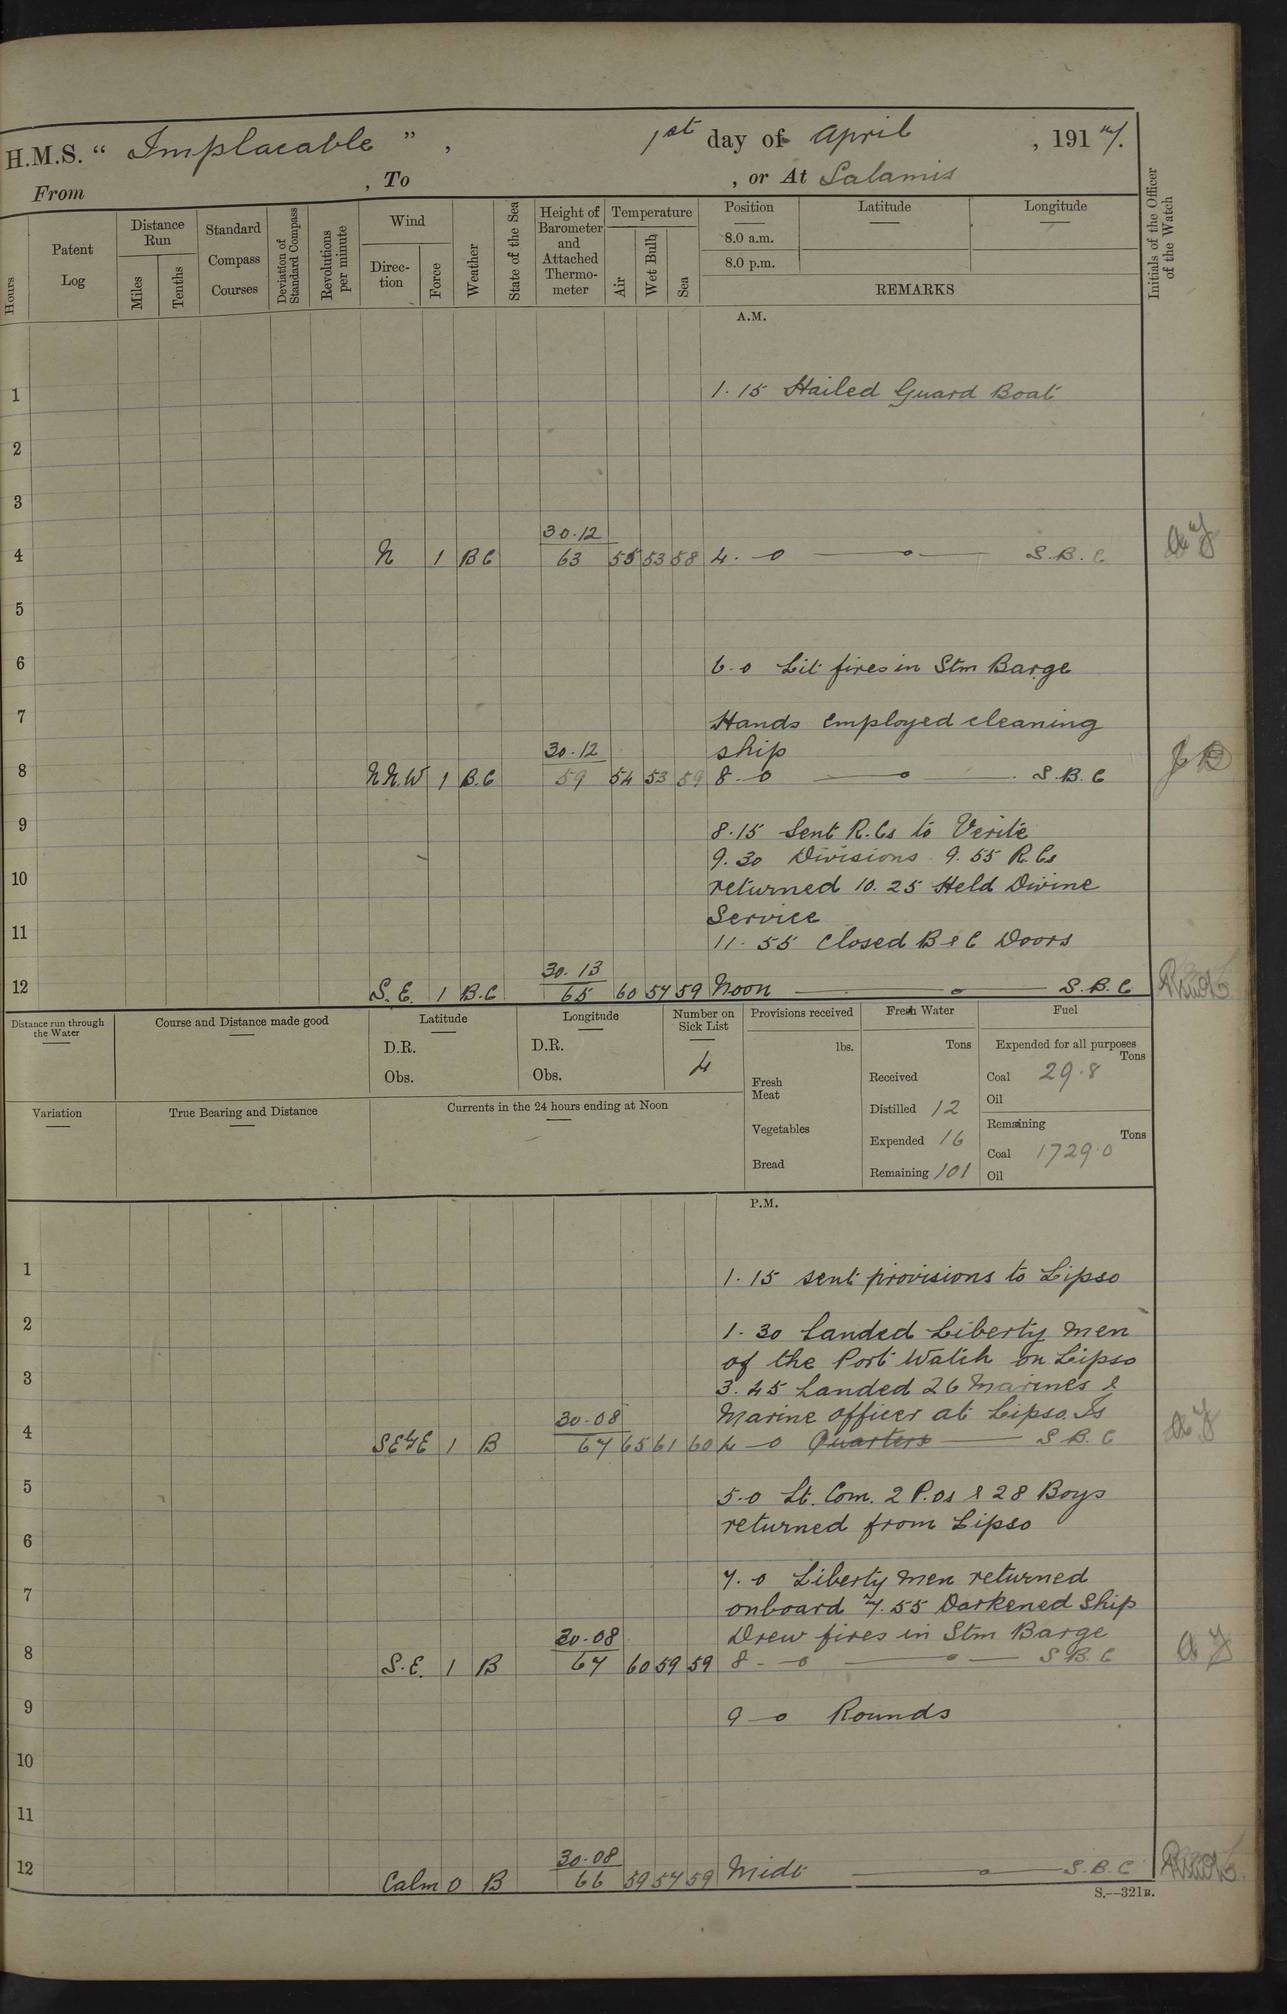 H.M.S. “ Implacable ” , 1st day of April , 1917.
From , To , or At Salamis
Hours
Patent Log
Distance Run
Miles
Tenths
Standard Compass Courses
Deviation of Standard Compass
Revolutions per minute
Wind
Direction
Force
Weather
State of the Sea
Height of Barometer and Attached Thermometer
Temperature
Air
Wet Bulb
Sea
Position
Latitude
Longitude
8.0 a.m.
8.0 p.m.
REMARKS
Initials of the Officer of the Watch
A.M.
1 1.15 Hailed Guard Boat
2
3
30.12
4 N 1 BC 63 55 53 58 4.-0 S.B.C
5
6 6.0 Lit fires in Stm Barge
7 Hands employed cleaning
30.12 ship
8 N.N.W 1 B.C 59 54 53 59 8-0 S.B.C
9 8.15 Sent R.Cs to Verite
9.30 Divisions 9.55 R.Cs
10 returned 10.25 Held Divine
Service
11 11.55 Closed B & C Doors
30.13
12 S.E. 1 B.C 65 60 57 59 Noon S.B.C
Distance run through the Water
Course and Distance made good
Latitude
D.R.
Obs.
Longitude
D.R.
Obs.
Number on Sick List
4
Provisions received
lbs.
Fresh Meat
Vegetables
Bread
Fresh Water
Tons
Received
Distilled 12
Expended 16
Remaining 101
Fuel
Expended for all purposes
Tons
Coal 29.8
Oil
Remaining
Tons
Coal 1729.0
Oil
Variation
True Bearing and Distance
Currents in the 24 hours ending at Noon
P.M.
1 1.15 sent provisions to Lipso
2 1.30 Landed Liberty men
of the Port Watch on Lipso
3 3.45 Landed 26 Marines &
30.08 Marine officer at Lipso Is
4 SE½E 1 B 67 65 61 60 4-0 Quarters S B.C
5 5-0 Lt. Com. 2 P.Os & 28 Boys
returned from Lipso
6
7.0 Liberty men returned
7 onboard 7.55 Darkened Ship
30.08 Drew fires in Stm Barge
8 S.E. 1 B 67 60 59 59 8-0 S B.C
9 9-0 Rounds
10
11
30.08
12 Calm 0 B 66 59 57 59 Midt S.B.C
S.—321B.